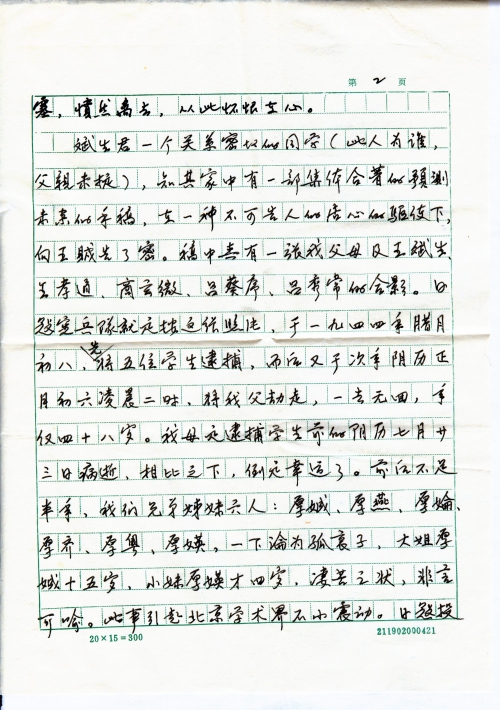 第 2 页
塞，愤然离去，从此怀恨在心。
斌生君一个关系密切的同学（此人为谁，
父亲未提），知其家中有一部集体合著的预测
未来的手稿，在一种不可告人的居心的驱使下，
向王贼告了密。稿中夹有一张我父母及王斌生、
生孝通、商玄微、吕葵序、吕季常的合影。日
敌宪兵队就是按这张照片，于一九四四年腊月
初八，先将五位学生逮捕，而后又于次年阴历正
月初六凌晨二时，将我父劫走，一去无回，年
仅四十八岁。我母是逮捕学生前的阴历七月廿
三日病逝，相比之下，倒是幸运了。前后不足
半年，我们兄弟姊妹六人：厚娍、厚燕、厚婾、
厚齐、厚粤、厚媖，一下沦为孤哀子，大姐厚
娍十五岁，小妹厚媖才四岁，凄苦之状，非言
可喻。此事引起北京学术界不小震动。日敌投
20×15=300
211902000421